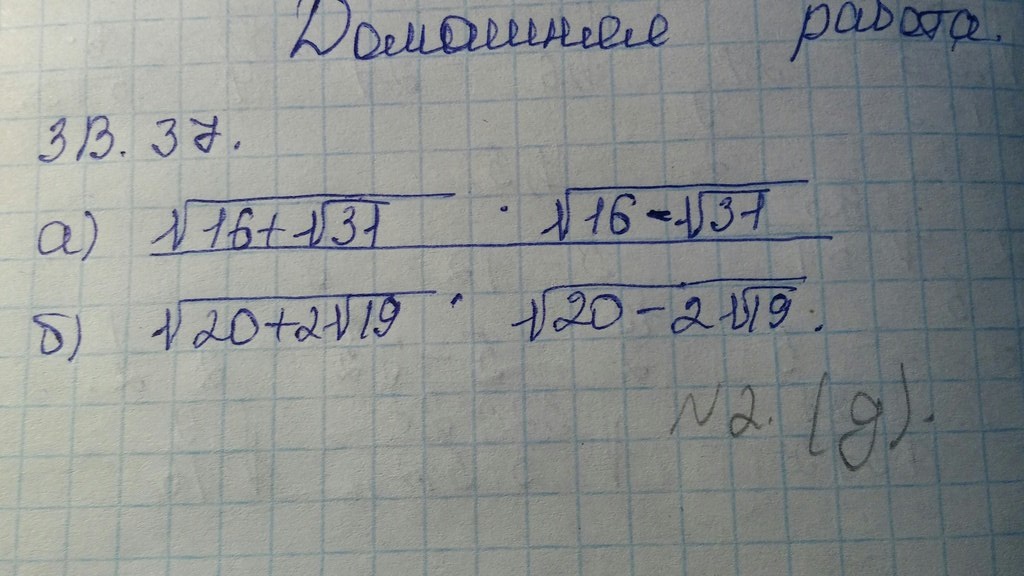 Домашнее работа.
ЗВ. 37.
а) √(16+√31) · √(16-√31)
б) √(20+2√19) · √(20-2√19).
№2. (д).